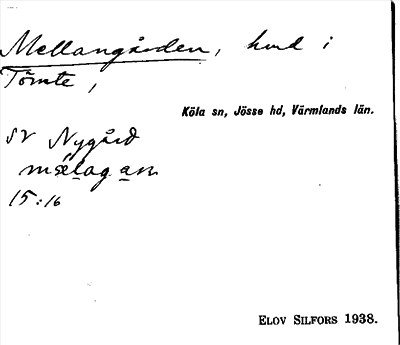 Mellangården, hmd i
Tömte,
Köla sn, Jösse hd, Värmlands län.
SV Nygård
mælagan
15:16
ELOV SILFORS 1938.